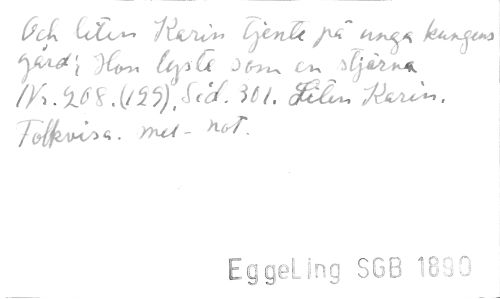 Och liten Karin tjente på unga kungens
gård; Hon lyste som en stjärna
Nr. 208. (129), Sid. 301. Liten Karin.
Folkvisa. mel- not.
EggeLing SGB 1890